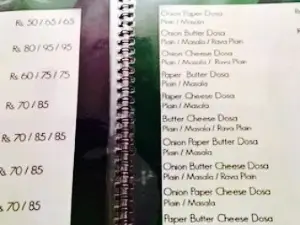 Rs 50 / 65 / 65
Rs 80 / 95 / 95
Rs 60 / 75 / 75
Rs 70 / 85
Rs 70 / 85 / 85
Rs 70 / 85
70 / 85 / 85
70 / 85
Onion Paper Dosa
Plain / Masala
Onion Butter Dosa
Plain / Masala / Rava Plain
Onion Cheese Dosa
Plain / Masala / Rava Plain
Paper Butter Dosa
Plain / Masala
Paper Cheese Dosa
Plain / Masala
Butter Cheese Dosa
Plain / Masala / Rava Plain
Onion Paper Butter Dosa
Plain / Masala
Onion Butter Cheese Dosa
Plain / Masala / Rava Plain
Onion Paper Cheese Dosa
Plain / Masala
Paper Butter Cheese Dosa